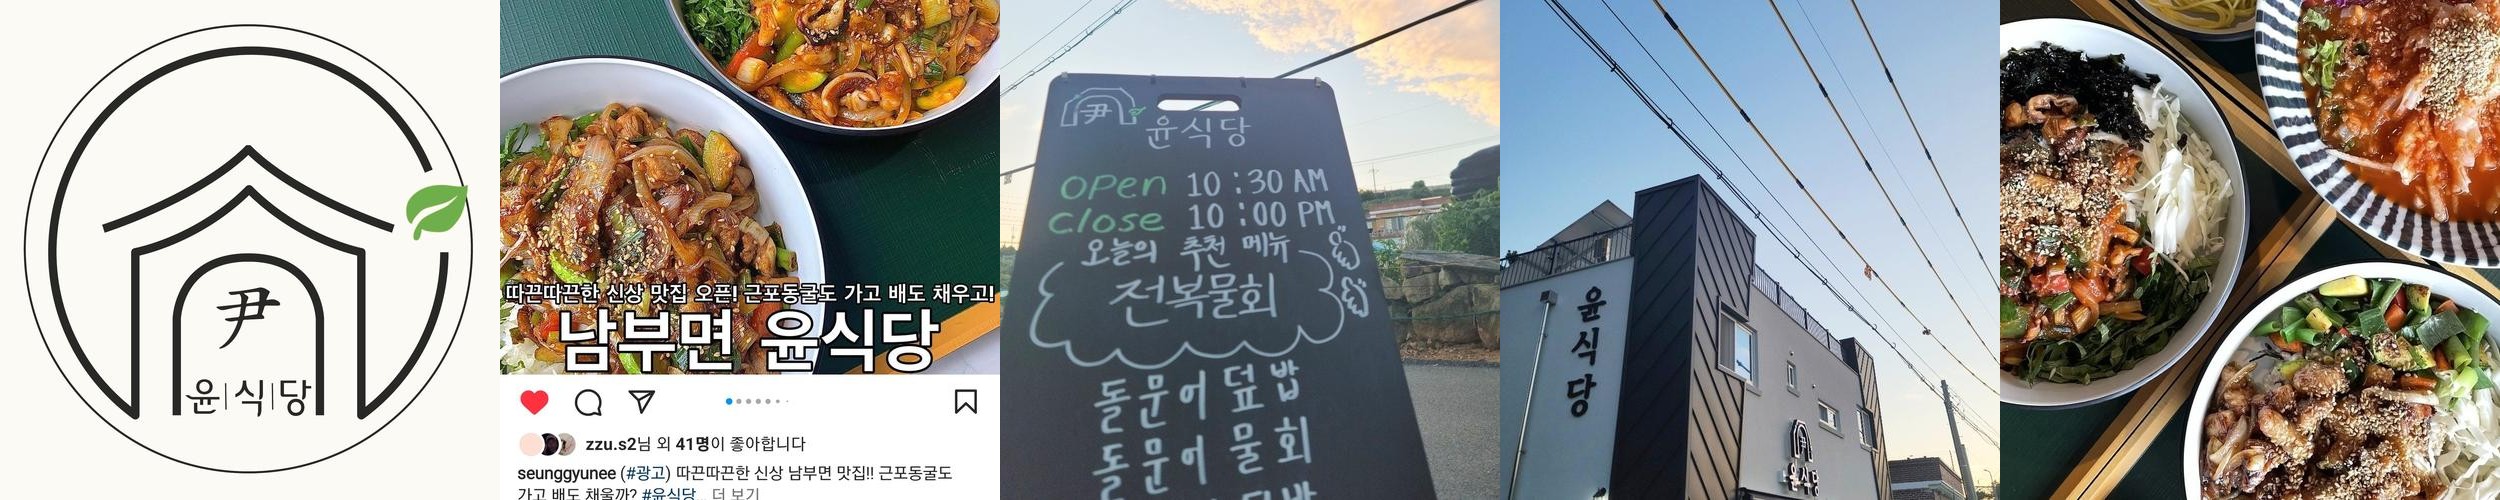 尹
윤식당
따끈따끈한 신상 맛집 오픈! 근포동굴도 가고 배도 채우고!
남부면 윤식당
zzu.s2님 외 41명이 좋아합니다
seunggyunee (#광고) 따끈따끈한 신상 남부면 맛집!! 근포동굴도
가고 배도 채울까? #윤식당... 더 보기
尹
윤식당
OPEN 10:30 AM
CLOSE 10:00 PM
오늘의 추천 메뉴
전복물회
돌문어 덮밥
돌문어 물회
윤식당
尹
윤식당